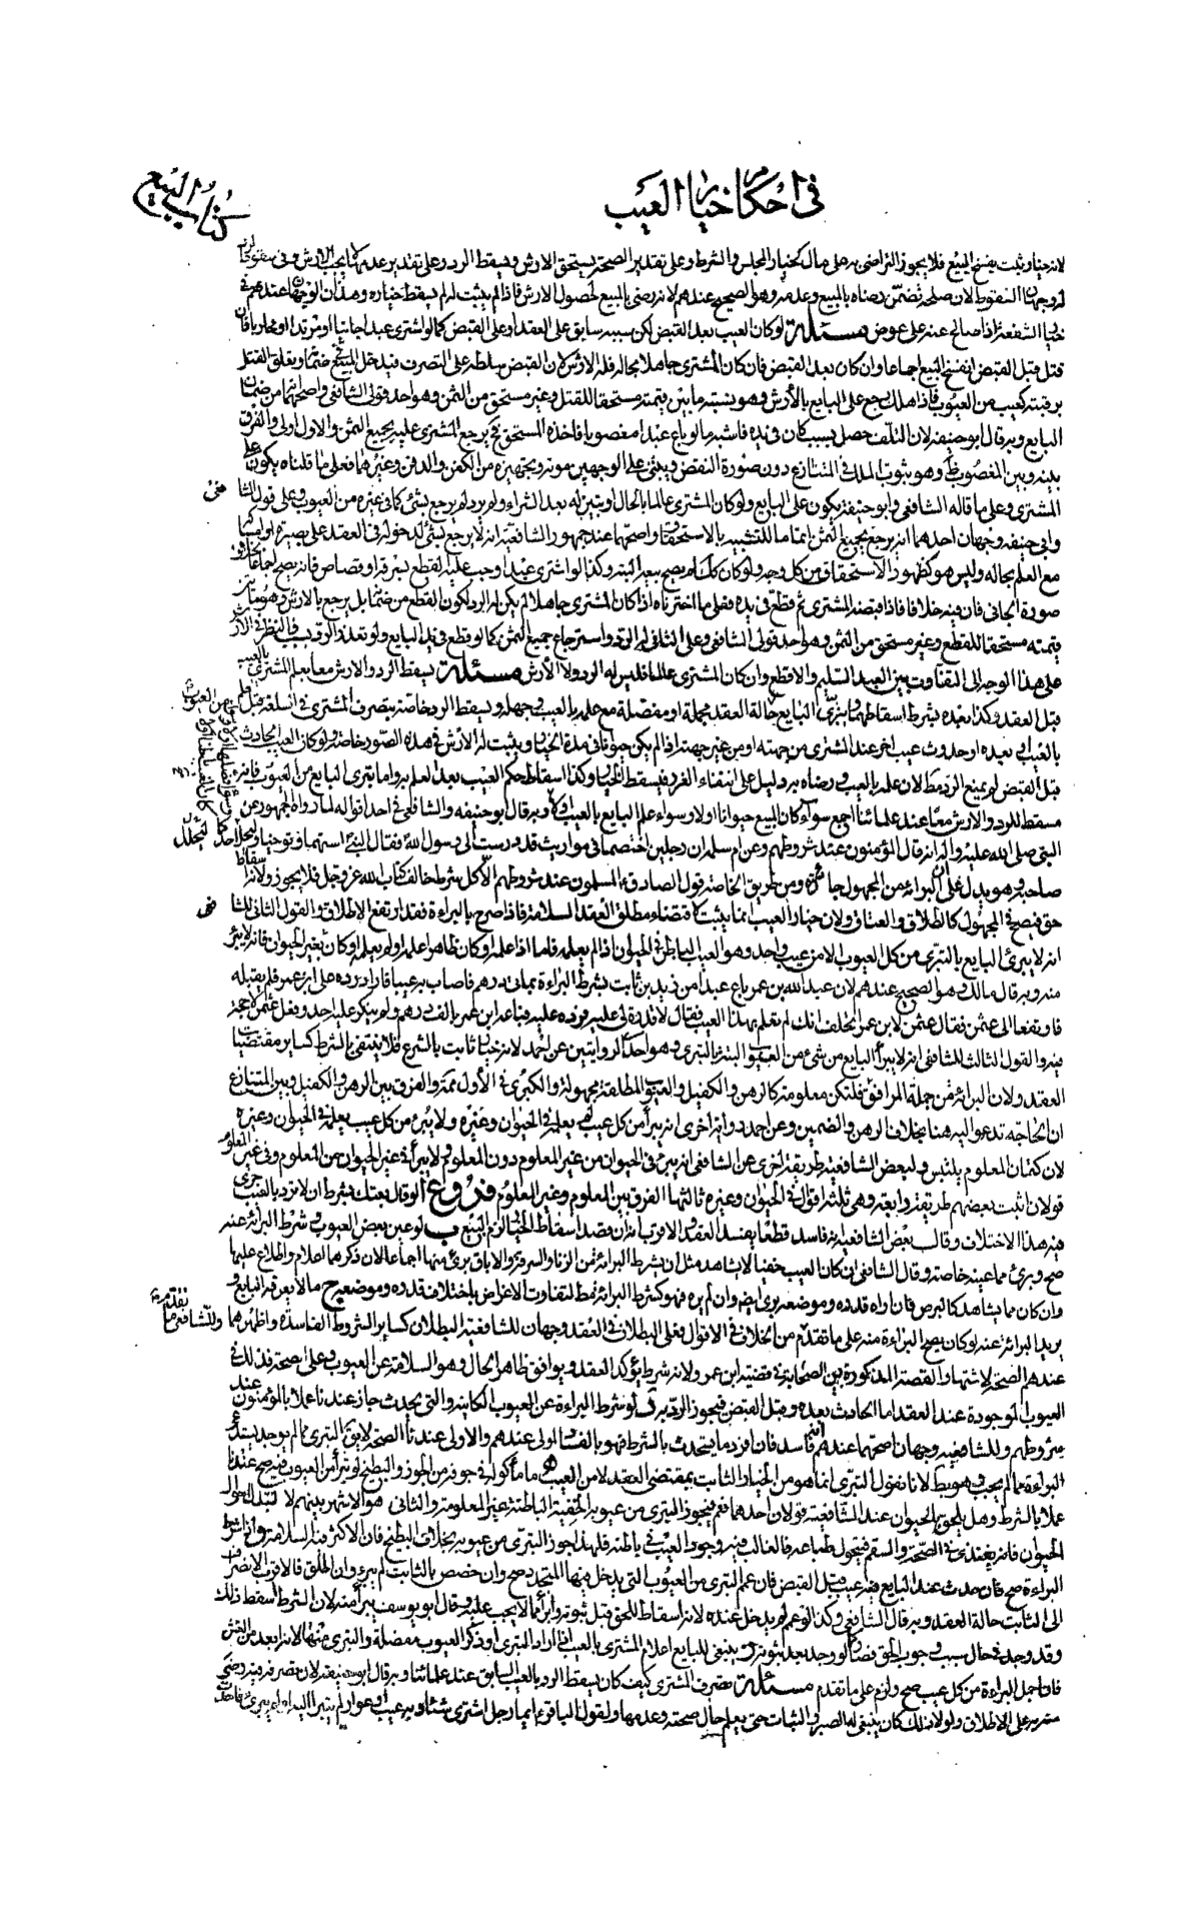 في احكام خيار العيب
كتاب البيع
لانه خيار يثبت بفسخ البيع فلا يجوز التراضي به على مال كخيار المجلس والشرط وعلى تقدير الصحة يستحق الارش ويسقط الرد وعلى تقدير عدمها لا يجب الارش وفي سقوط
الرد وجهان السقوط لان صلحه تضمن رضاه بالبيع وعدمه وهو الصحيح عندهم لانه رضي بالبيع لحصول الارش فاذا لم يثبت له لم يسقط خياره وهذان الوجهان عندهم في
خيار الشفعة اذا صالح عنه على عوض مسئلة لو كان العيب بعد القبض لكن سببه سابق على العقد او على القبض كما لو اشترى عبدا جانيا او مرتدا او محاربا فان
قتل قبل القبض انفسخ البيع اجماعا وان كان بعد القبض فان كان المشتري جاهلا بحاله فله الارش لان القبض سلطه على التصرف فيدخل المبيع في ضمانه وتعلق القتل
برقبته كعيب من العيوب فاذا هلك رجع على البايع بالأرش وهو نسبة ما بين قيمته مستحقا للقتل وغير مستحق من الثمن وهو احد قولي الشافعي واصحهما من ضمان
البايع وبه قال ابو حنيفة لان التلف حصل بسبب كان في يده فاشبه ما لو باع عبدا مغصوبا فاخذه المستحق فح يرجع المشتري عليه بجميع الثمن والاول اولى والفرق
بينه وبين المغصوب ظ وهو ثبوت الملك في المتنازع دون صورة النقض ويبتنى على الوجهين مؤنة تجهيزه من الكفن والدفن وغيرهما فعلى ما قلناه يكون على
المشتري وعلى ما قاله الشافعي وابو حنيفة يكون على البايع ولو كان المشتري عالما بالحال او تبين له بعد الشراء ولم يرد لم يرجع بشيء كما في غيره من العيوب وعلى قول الشافعي
وابي حنيفة وجهان احدهما انه يرجع بجميع الثمن اتماما للتشبيه بالاستحقاق واصحهما عند جمهور الشافعية انه لا يرجع بشيء لدخوله في العقد على بصيرة او امساكه
مع العلم بحاله وليس هو كظهور الاستحقاق من كل وجه ولو كان كذلك لم يصح بيعه البتة وكذا لو اشترى عبدا وجب عليه القطع بسرقة او قصاص فانه يصح اجماعا بخلاف
صورة الجاني فان فيه خلافا فاذا قبضه المشتري ثم قطع في يده فعلى ما اخترناه اذا كان المشتري جاهلا لم يكن له الرد لكون القطع من ضمانه بل يرجع بالارش وهو ما بين
قيمته مستحقا للقطع وغير مستحق من الثمن وهو احد قولي الشافعي وعلى الثاني له الرد واسترجاع جميع الثمن كما لو قطع في يد البايع ولو تعذر الرد بسبب فالنظر في الارش
على هذا الوجه الى التفاوت بين العبد السليم والاقطع وان كان المشتري عالما فليس له الرد ولا الأرش مسئلة يسقط الرد والارش معا بعلم المشتري بالعيب
قبل العقد وكذا بعده بشرط اسقاطهما وبتبري البايع حالة العقد مجملة او مفصلة مع علمه بالعيب وجهله ويسقط الرد خاصة بتصرف المشتري في السلعة قبل علمه
بالعيب او بعده او حدوث عيب اخر عند المشتري من جهته او من غير جهته اذا لم يكن حيوانا في مدة الخيار ويثبت له الأرش في هذه الصور خاصة ولو كان العيب الحادث
قبل القبض لم يمنع الرد مط لان علمه بالعيب ورضاه به دليل على انتفاء الغرر فيسقط الخيار وكذا اسقاط حكم العيب بعد العلم به واما تبري البايع من العيوب فانه
مسقط للرد والارش معا عند علمائنا اجمع سواء كان المبيع حيوانا او لا وسواء علم البايع بالعيب او لا وبه قال ابو حنيفة والشافعي في احد اقواله لما رواه الجمهور عن
النبي صلى الله عليه واله انه قال المؤمنون عند شروطهم وعن ام سلمة ان رجلين اختصما في مواريث قد درست الى رسول الله فقال النبي استهما وتوخيا وليحلل احدكما
صاحبه وهو يدل على ان البراءة من المجهول جائزة ومن طريق الخاصة قول الصادق المسلمون عند شروطهم الا كل شرط خالف كتاب الله عز وجل فلا يجوز ولانه اسقاط
حق فيصح في المجهول كالطلاق والعتاق ولان خيار العيب انما يثبت لاقتضاء مطلق العقد السلامة فاذا صرح بالبراءة فقد ارتفع الاطلاق والقول الثاني للشافعي
انه لا يبرئ البايع بالتبري من كل العيوب الا من عيب واحد وهو العيب الباطن في الحيوان اذا لم يعلمه فاما اذا علمه او كان ظاهرا علمه او لم يعلمه او كان بغير الحيوان فانه لا يبرء
منه وبه قال مالك وهو الصحيح عندهم لان عبد الله بن عمر باع عبدا من زيد بن ثابت بشرط البراءة بثمانمائة درهم فاصاب به عيبا فاراد رده على ابن عمر فلم يقبله
فترافعا الى عثمن فقال عثمن لابن عمر اتحلف انك لم تعلم بهذا العيب فقال لا فرده عليه فباعه ابن عمر بالف درهم ولم ينكر عليه احد وفعل عثمن لا حجة
فيه والقول الثالث للشافعي انه لا يبرأ البايع من شيء من العيوب البتة بالتبري وهو احد الروايتين عن احمد لانه خيار ثابت بالشرع فلا ينتفي بالشرط كساير مقتضيات
العقد ولان البراءة من جملة المرافق فلتكن معلومة كالرهن والكفيل والعيوب المطلقة مجهولة والكبرى في الأول ممنوعة والفرق بين الرهن والكفيل وبين المتنازع
ان الحاجة تدعو اليه هنا بخلاف الرهن والضمين وعن احمد رواية اخرى انه يبرأ من كل عيب لم يعلمه في الحيوان وغيره ولا يبرء من كل عيب يعلمه في الحيوان وغيره
لان كتمان المعلوم تلبيس ولبعض الشافعية طريقة اخرى عن الشافعي انه يبرء في الحيوان من غير المعلوم دون المعلوم ولا يبرأ في غير الحيوان من المعلوم وفي غير المعلوم
قولان اثبت بعضهم طريقة رابعة وهي ثلثة اقوال في الحيوان وغيره ثالثها الفرق بين المعلوم وغير المعلوم فروع ا لو قال بعتك بشرط ان لا ترد بالعيب جرى
فيه هذا الاختلاف وقال بعض الشافعية انه فاسد قطعا يفسد العقد والاقرب انه ان قصد اسقاط الخيار لزم البيع ب لو عين بعض العيوب وشرط البراءة عنه
صح وبرئ مما عينه خاصة وقال الشافعي ان كان العيب خفيا لا يشاهد مثل ان يشرط البراءة من الزنا والسرقة والاباق برئ منها اجماعا لان ذكرها اعلام واطلاع عليها
وان كان مما يشاهد كالبرص فان اراه قدره وموضعه برئ ايضا وان لم يره فهو كشرط البراءة مط لتفاوت الاغراض باختلاف قدره وموضعه ج ما لا يعرفه البايع و
يريد البراءة عنه لو كان يصح البراءة منه على ما تقدم من الخلاف في الاقوال فعلى البطلان في العقد وجهان للشافعية البطلان كساير الشروط الفاسدة واظهرهما وللشافعي ما تقدم
عندهم الصحة لاشتهار القصة المذكورة بين الصحابة في قضية ابن عمر ولانه شرط يؤكد العقد ويوافق ظاهر الحال وهو السلامة عن العيوب وعلى الصحة فذلك في
العيوب الموجودة عند العقد اما الحادث بعده وقبل القبض فيجوز الرد به د لو شرط البراءة عن العيوب الكاينة والتي يحدث جاز عندنا عملا بالمؤمنون عند
شروطهم وللشافعية وجهان اصحهما عندهم انه فاسد فان افرد ما يتحدث بالشرط فهو بالفساد اولى عندهم والاولى عندنا الصحة لا يقال التبري مما لم يوجد يستدعي
البراءة مما لم يجب وهو بط لانا نقول التبري انما هو من الخيار الثابت بمقتضى العقد لا من العيب ه ما مأكوله في جوفه من الجوز والبطيخ لو تبرأ من العيوب فيه صح عندنا
عملا بالشرط وهل يلحق بالحيوان عند الشافعية قولان احدهما نعم فيجوز التبري من عيوبه الخفية الباطنة غير المعلومة والثاني هو الاشهر بينهم لا لتبدل احوال
الحيوان فانه يغتذي في الصحة والسقم فتحول طباعه فالغالب فيه وجود العيب في باطنه فلهذا جوز التبري من عيوبه بخلاف البطيخ فان الاكثر فيه السلامة و اذا شرط
البراءة صح فان حدث عند البايع فيه عيب قبل القبض فان عمم التبري من العيوب التي يدخل فيها المتجدد صح وان خصص بالثابت لم يبرء وان اطلق فالاقرب الانصراف
الى الثابت حالة العقد وبه قال الشافعي وكذا لو عمم لم يدخل عنده لانه اسقاط للحق قبل ثبوته وابراء مما لا يجب عليه وقال ابو يوسف يبرأ منه لان الشرط اسقط ذلك
وقد وجد في حال سبب وجوب الحق فصار كما لو وجد بعد ثبوته ز ينبغي للبايع اعلام المشتري بالعيب اذا اراد التبري او ذكر العيوب مفصلة والتبري منها لانه ابعد من الغش
فان اجمل البراءة من كل عيب صح ولزم على ما تقدم مسئلة تصرف المشتري كيف كان يسقط الرد بالعيب السابق عند علمائنا وبه قال ابو حنيفة لان تصرفه فيه رضى
منه به على الاطلاق ولولا ذلك كان ينبغي له الصبر والثبات حتى يعلم حال صحته وعدمها ولقول الباقر ايما رجل اشترى شيئا وبه عيب وعوار لم يتبرء اليه ولم يبرئ فاحدث